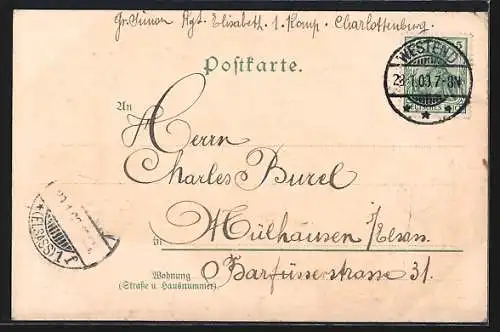 Gr. Simon Rgt. Elisabeth. 1. Komp. Charlottenburg.
WESTEND
Postkarte.
An
Herrn
Charles Burel
Mülhausen i/Elsass.
in
Wohnung
(Straße u. Hausnummer)
Barfüsserstrasse 31.
(ELSASS)